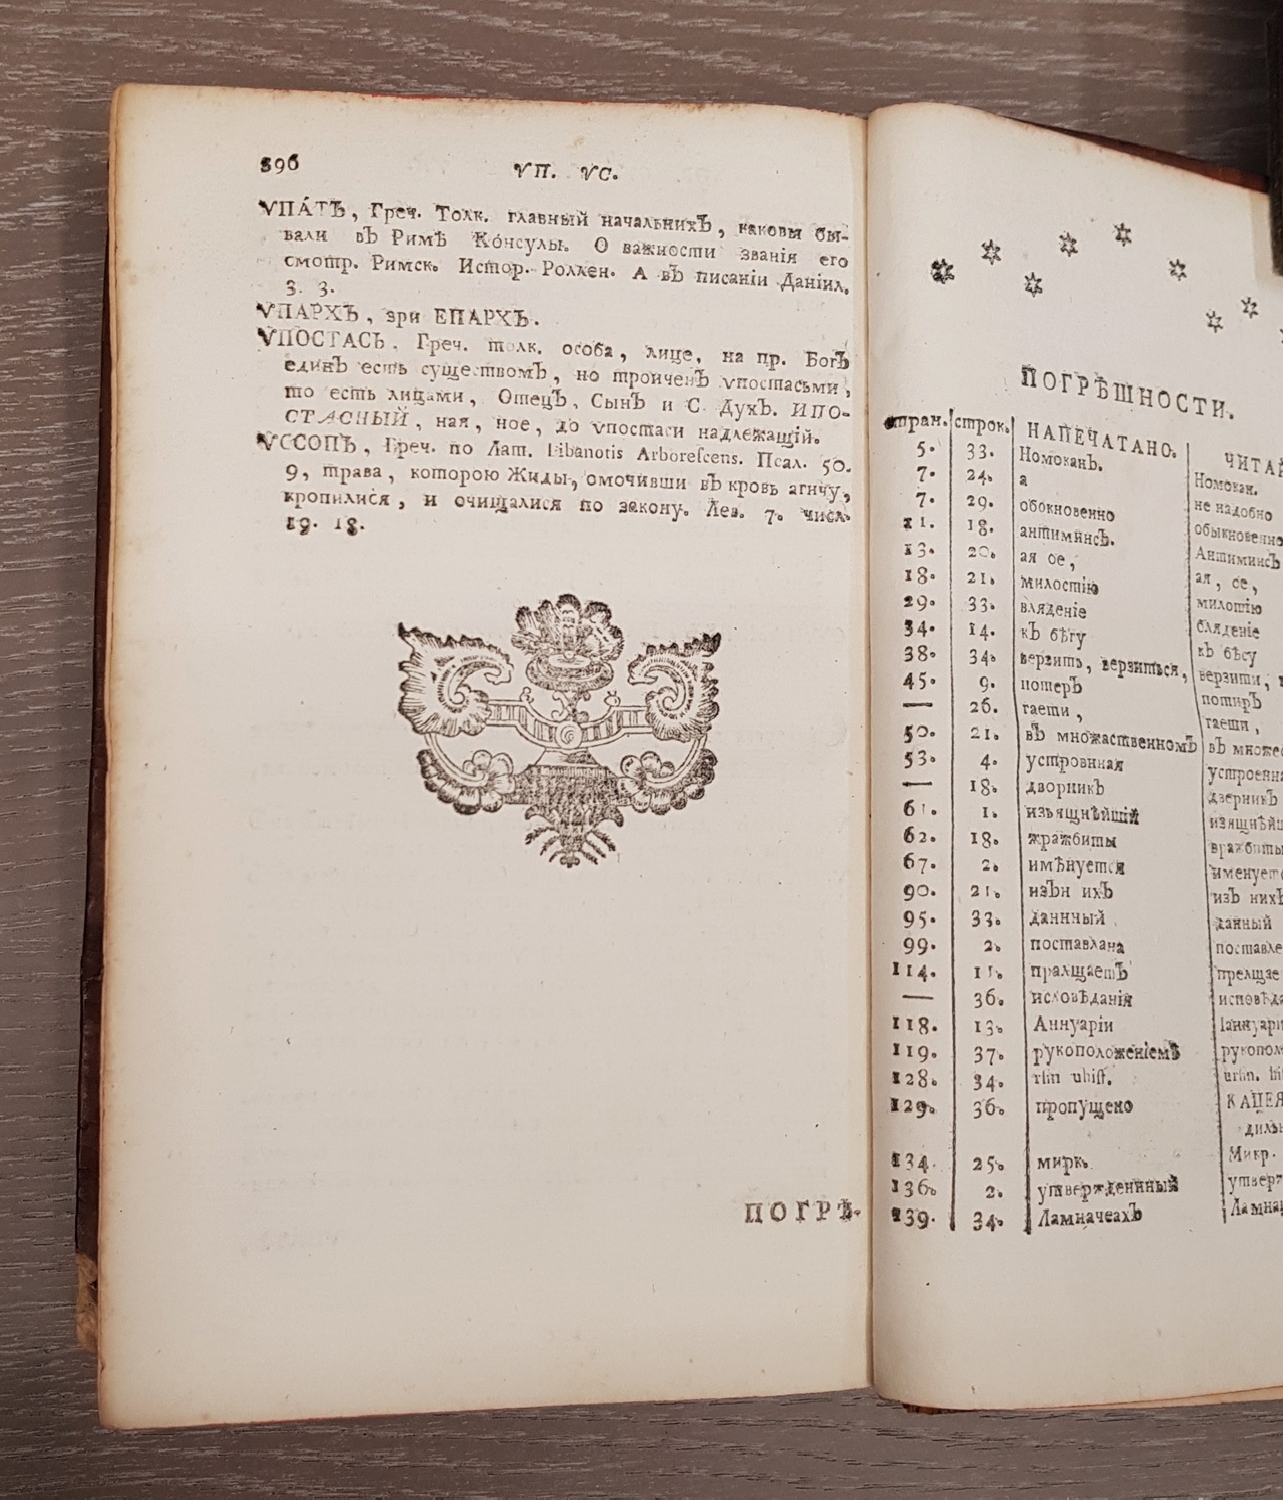 396
ѴП. ѴС.
ѴПА́ТЪ, Греч. Толк. главный начальникЪ, каковы бы-
вали вЪ Римѣ Ко́нсулы. О важности званія его
смотр. Римск. Истор. Роллен. А вЪ писаніи Даніил.
3. 3.
ѴПАРХЪ, зри ЕПАРХЪ.
ѴПОСТАСЬ. Греч. толк. особа, лице, на пр. БогЪ
единЪ есть существомЪ, но троиченЪ ѵпостасьми,
то есть лицами, ОтецЪ, СынЪ и С. ДухЪ. ИПО-
СТАСНЫЙ, ная, ное, до ѵпостаси надлежащій.
ѴССОПЪ, Греч. по Лат. Libanotis Arborescens. Псал. 50.
9, трава, которою Жиды, омочивши вЪ кровь агнчу,
кропилися, и очищалися по закону. Лев. 7. числ.
19. 18.
ПОГРѢ-
ПОГРѢШНОСТИ.
стран. строк. НАПЕЧАТАНО.
5. 33. НомоканЪ. Номокан.
7. 24. а не надобно
7. 29. обокновенно обыкновенно
11. 18. антиминсЪ. АнтиминсЪ
13. 20. ая ое, ая, ое,
18. 21. милостію милотію
29. 33. вляденіе бляденіе
34. 14. кЪ бѣгу кЪ бѣсу
38. 34. верзить, верзиться, верзити,
45. 9. потерЪ потирЪ
— 26. гаети, гаети,
50. 21. вЪ множаственномЪ вЪ
53. 4. устровнная
— 18. дворникЪ дверникЪ
61. 1. изъящнѣйшій
62. 18. жражбиты
67. 2. имѣнуется
90. 21. изЪн ихЪ изЪ нихЪ
95. 33. даннчый данный
99. 2. поставлана
114. 11. пралщаетЪ
— 36. исловѣданія
118. 13. Аннуаріи
119. 37. рукоположеніемѣ
128. 34.
129. 36. пропущено
134. 25. мирк. Микр.
136. 2. утвержденнный
139. 34. ЛамначеахЪ